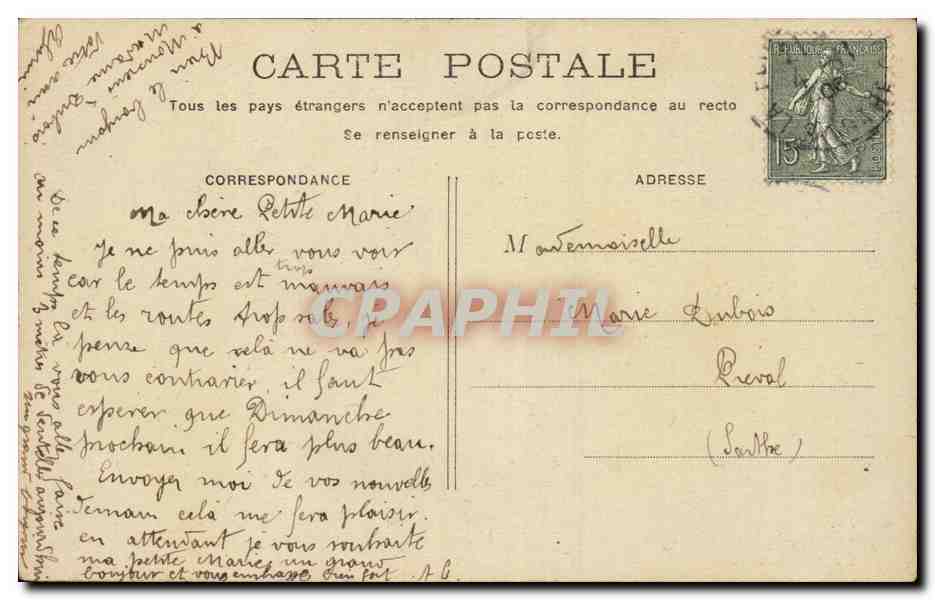 CARTE POSTALE
Tous les pays étrangers n'acceptent pas la correspondance au recto
Se renseigner à la poste.
CORRESPONDANCE
Ma chère Petite Marie
Je ne puis aller vous voir
car le temps est trop mauvais
et les routes trop sales, je
pense que cela ne va pas
vous contrarier, il faut
esperer que Dimanche
prochain il fera plus beau.
Envoyer moi de vos nouvelles
demain cela me fera plaisir.
en attendant je vous souhaite
ma petite Marie un grand
bonjour et vous embrasse bien fort
De ce temps là vous alle faire
au moins 3 mètres de dentelles aujourd'hui
Bien le bonjour
à Monsieur &
Madame Dubois
Votre ami
ADRESSE
Mademoiselle
Marie Dubois
Préval
(Sarthe)
REPUBLIQUE FRANCAISE
15
CPAPHIL